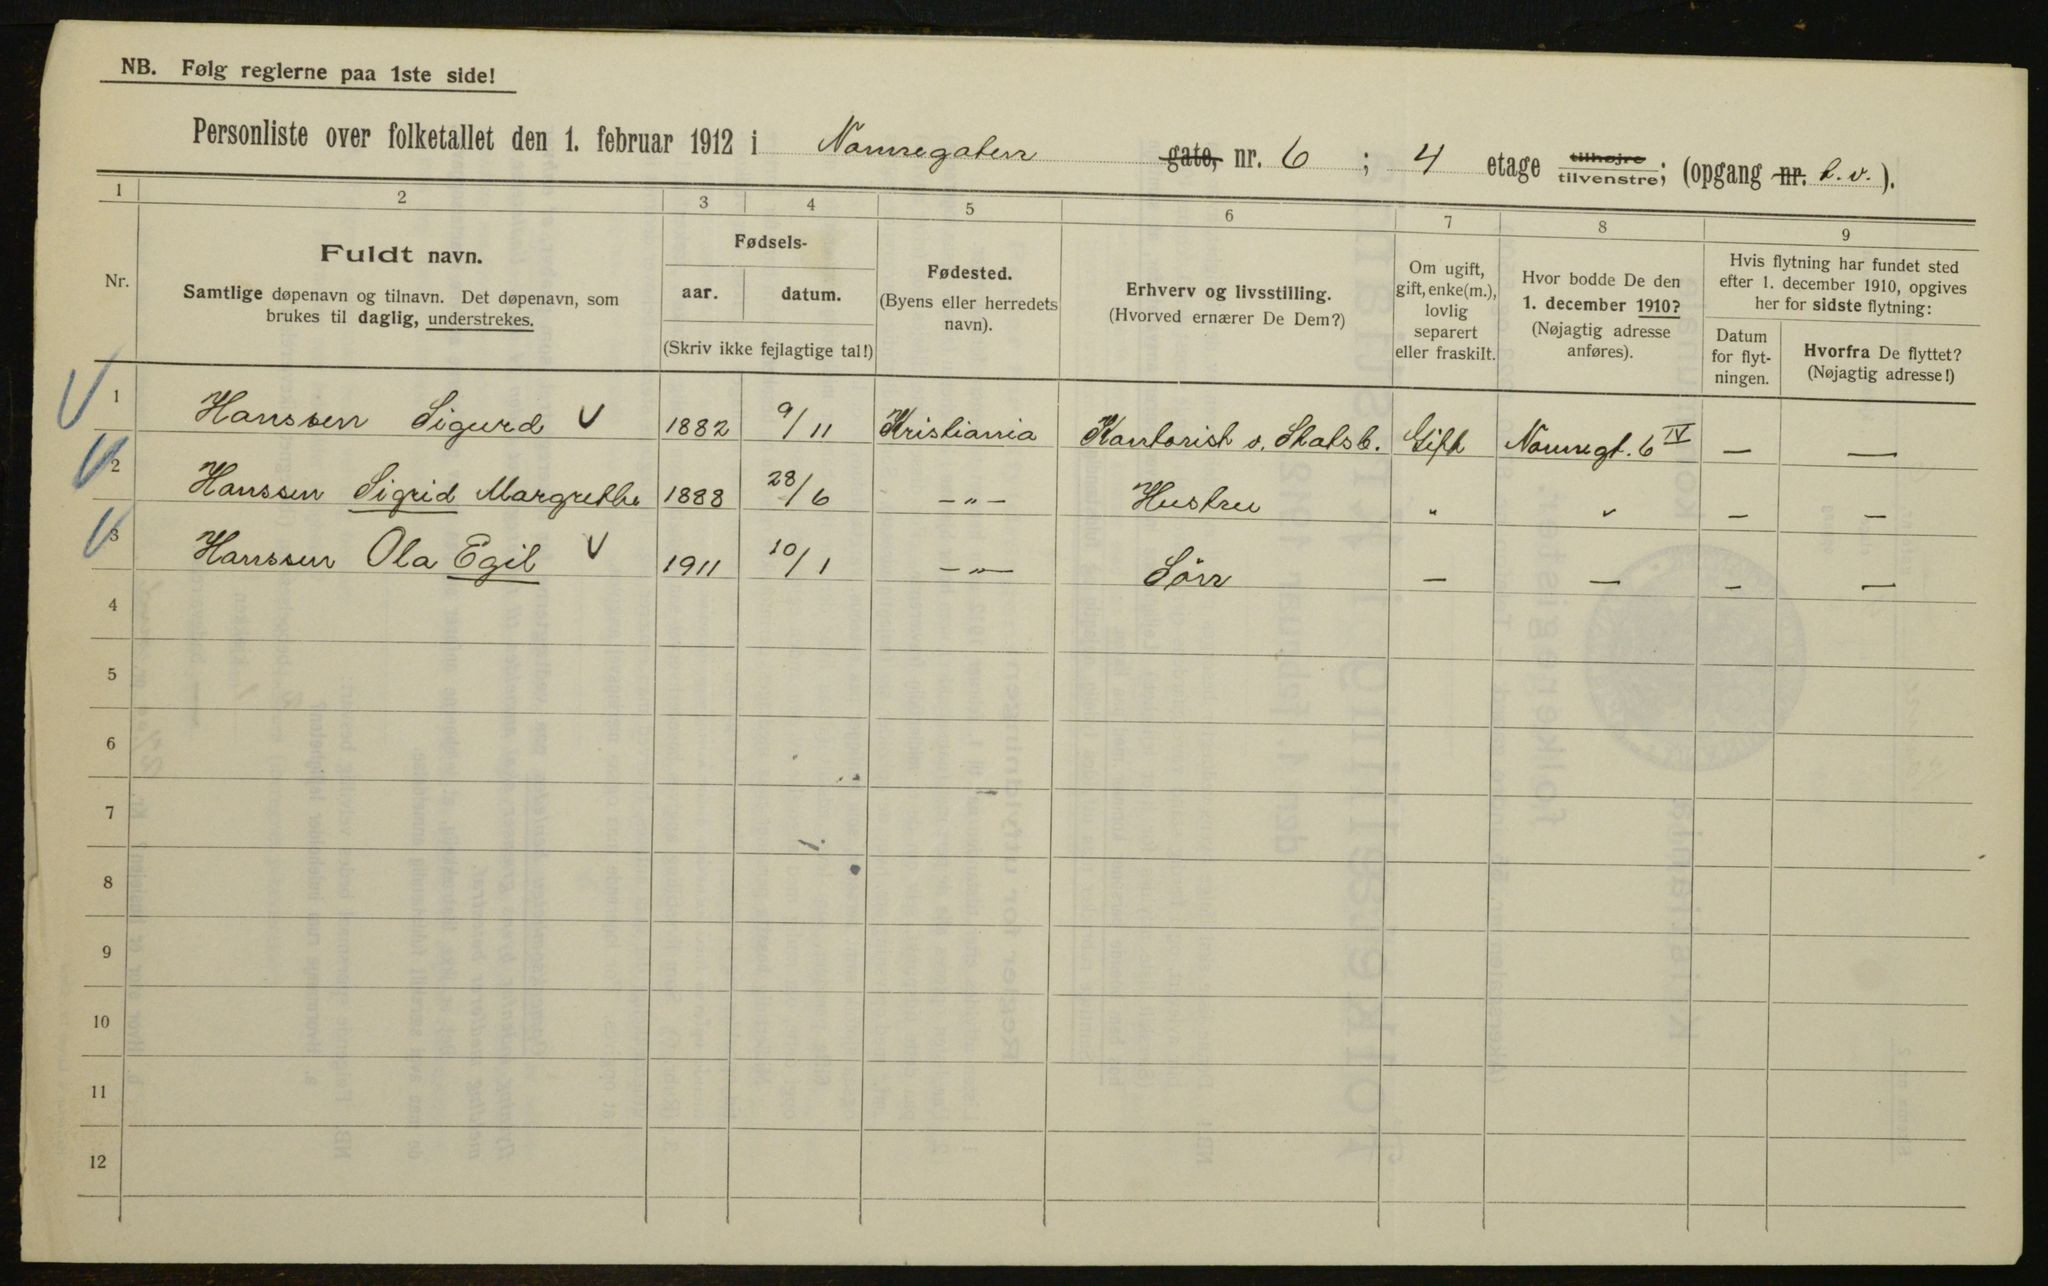 NB. Følg reglerne paa 1ste side!
Personliste over folketallet den 1. februar 1912 i Nannegaten gate, nr. 6 ; 4 etage tilhøjre tilvenstre; (opgang nr. t. v. ).
1 2 3 4 5 6 7 8 9
Nr.
Fuldt navn.
Samtlige døpenavn og tilnavn. Det døpenavn, som
brukes til daglig, understrekes.
Fødsels-
aar. datum.
(Skriv ikke fejlagtige tal!)
Fødested.
(Byens eller herredets
navn).
Erhverv og livsstilling.
(Hvorved ernærer De Dem?)
Om ugift,
gift, enke(m.),
lovlig
separert
eller fraskilt.
Hvor bodde De den
1. december 1910?
(Nøjagtig adresse
anføres).
Hvis flytning har fundet sted
efter 1. december 1910, opgives
her for sidste flytning:
Datum
for flyt-
ningen.
Hvorfra De flyttet?
(Nøjagtig adresse!)
1 Hanssen Sigurd V 1882 9/11 Kristiania Kontorist v. Statsb. Gift Nannegt. 6 IV — —
2 Hanssen Sigrid Margrethe 1888 28/6 —„— Hustru „ „ — —
3 Hanssen Ola Egil V 1911 10/1 —„— Sönn — — — —
4
5
6
7
8
9
10
11
12